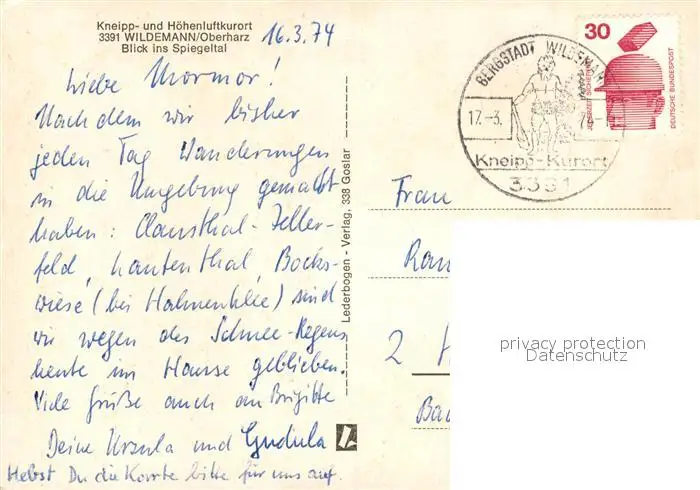 Kneipp- und Höhenluftkurort
3391 WILDEMANN/Oberharz
Blick ins Spiegeltal
16.3.74
Liebe Mormor!
Nachdem wir bisher
jeden Tag Wanderungen
in die Umgebung gemacht
haben: Clausthal-Zeller-
feld, Lautenthal, Bocks-
wiese (bei Hahnenklee) sind
wir wegen des Schnee-Regens
heute im Hause geblieben.
Viele Grüße auch an Brigitte
Deine Ursula und Gudula
Hebst Du die Karte bitte für uns auf.
Lederbogen - Verlag, 338 Goslar
BERGSTADT WILDEMANN
17.-3. 74
Kneipp-Kurort
3391
30
JEDERZEIT SICHERHEIT
DEUTSCHE BUNDESPOST
Frau
2 H
privacy protection
Datenschutz